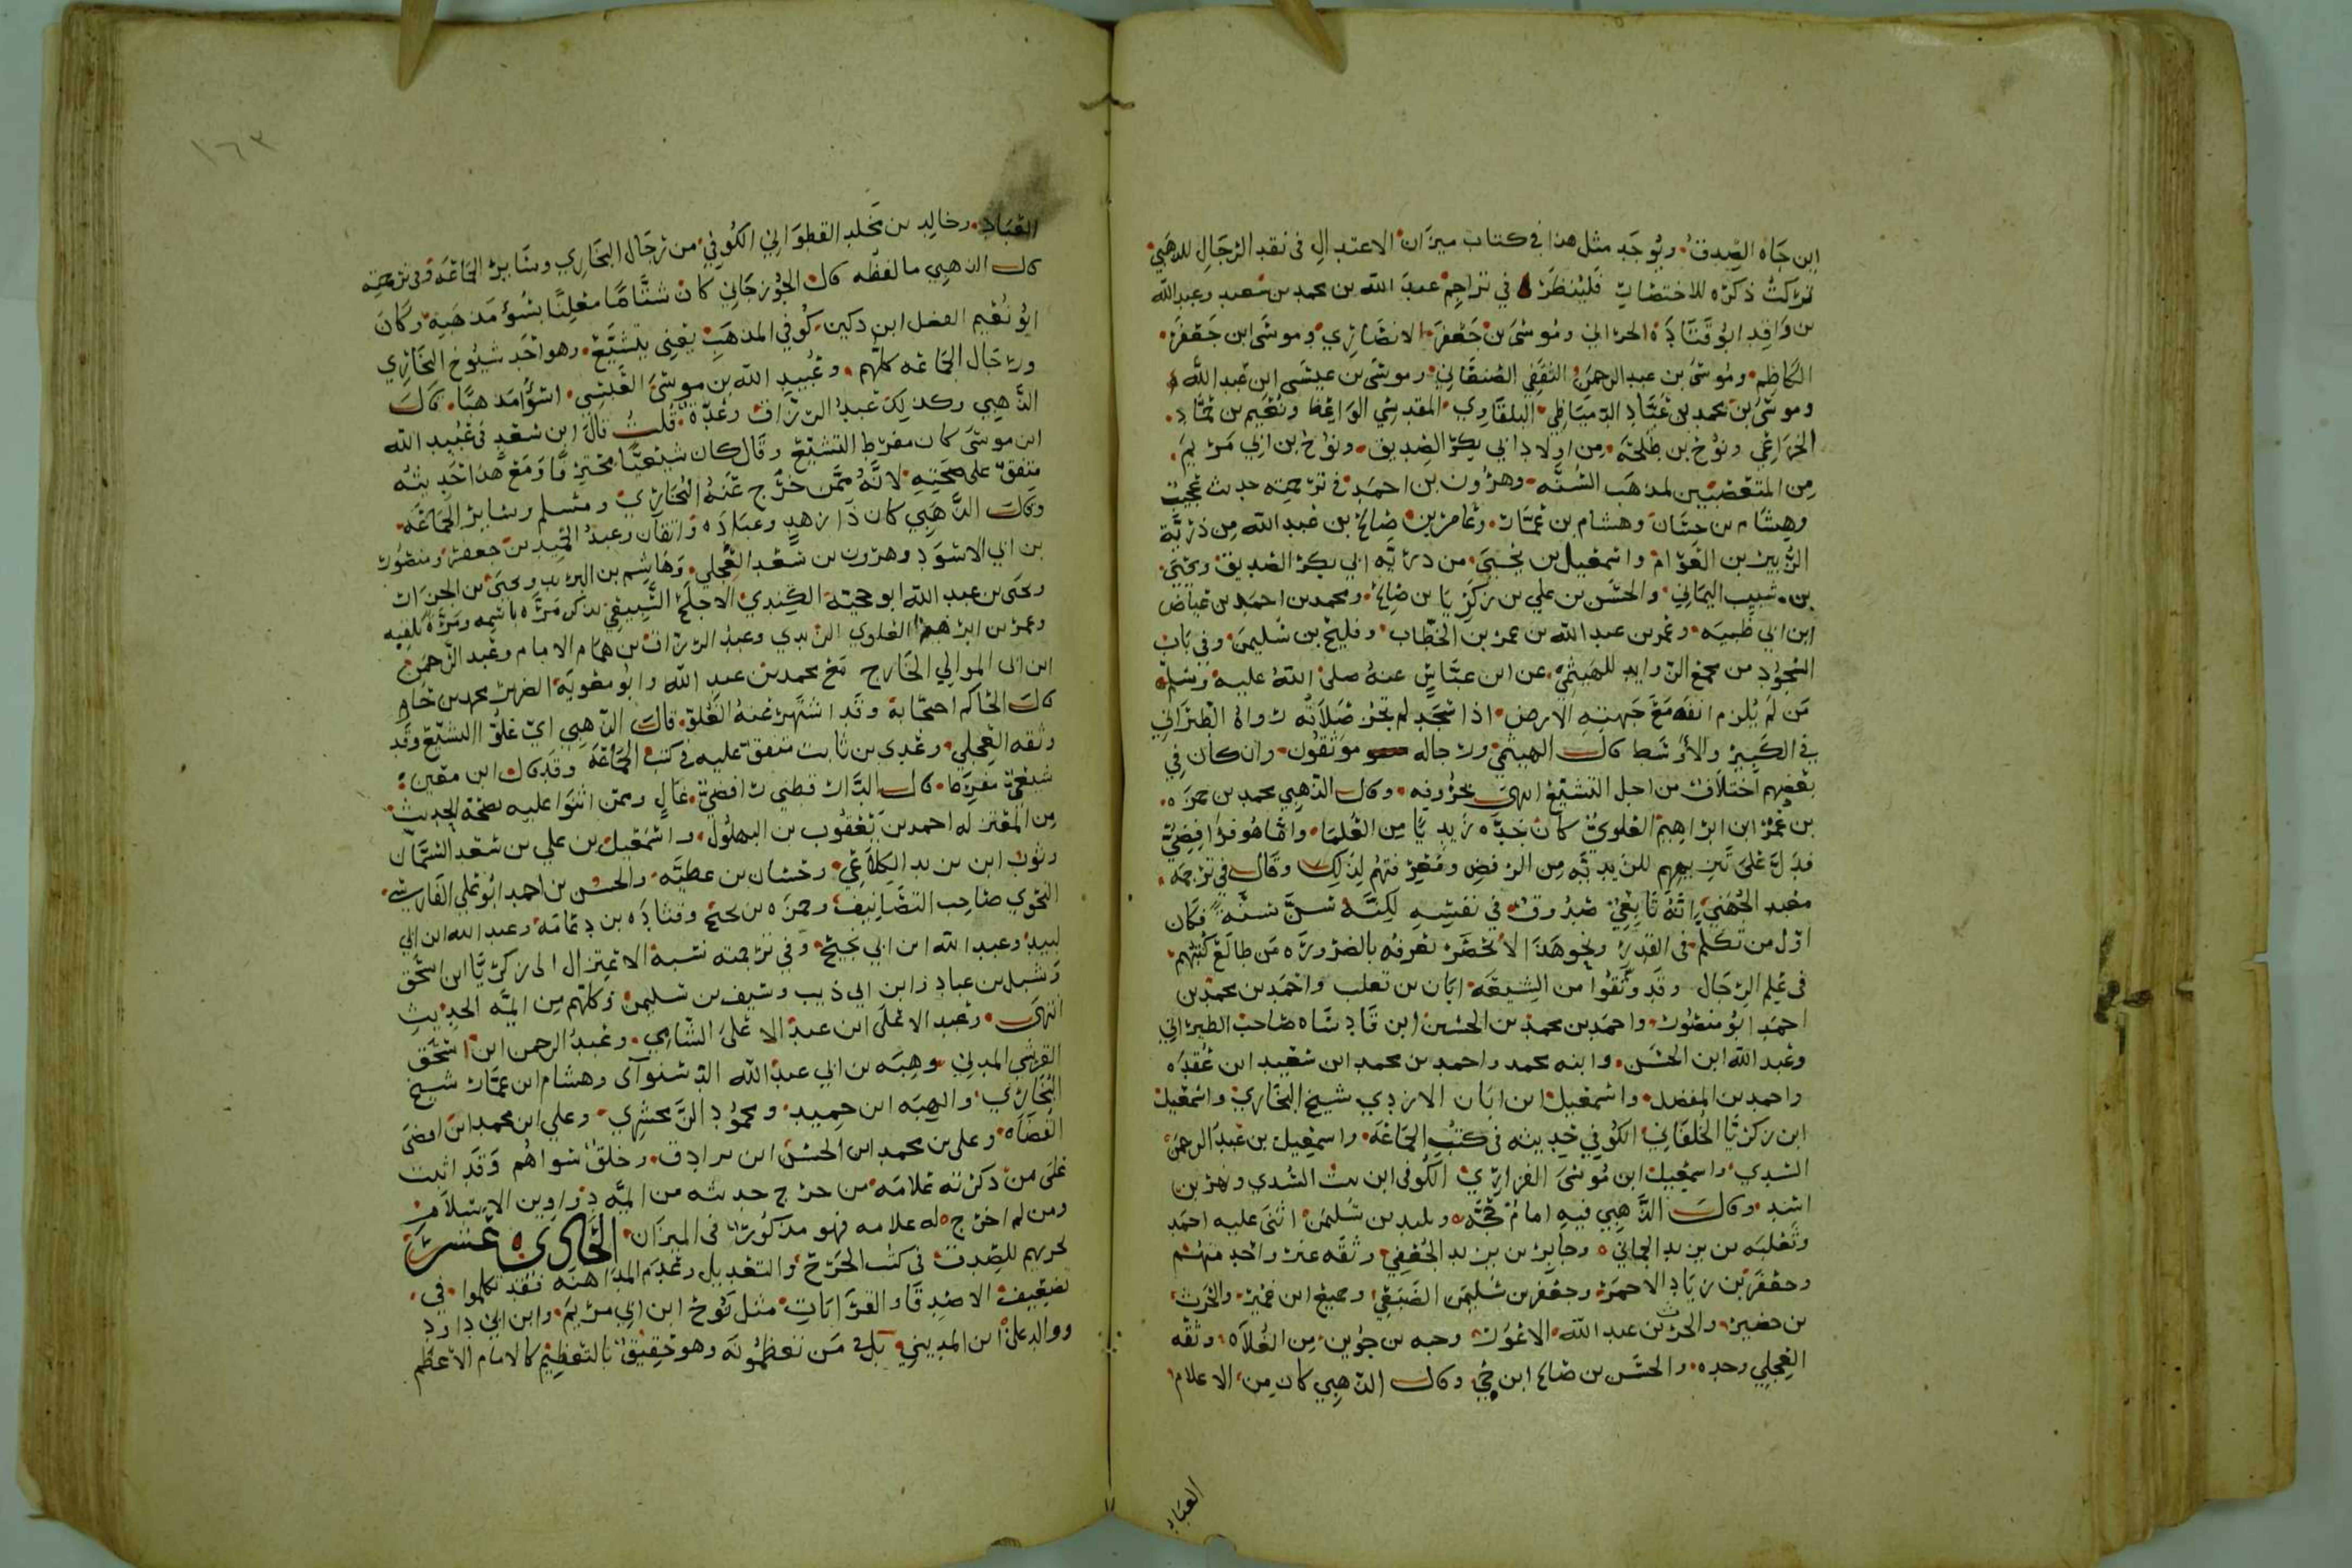 ابن جاه الصدق ويوجد مثل هذا في كتاب ميزان الاعتدال في نقد الرجال للذهبي
تركت ذكره للاختصار فلينظر في تراجم عبد الله بن محمد بن سعيد وعبد الله
بن واقد ابو قتادة الحراني وموسى بن جعفر الانصاري وموسى ابن جعفر
الكاظم وموسى بن عبد الرحمن الثقفي الصنعاني وموسى بن عيسى ابن عبد الله
وموسى بن محمد بن عطا الدمياطي البلقاوي المقدسي الواعظ ونعيم بن حماد
الخزاعي ونوح بن طلحة من اولاد ابي بكر الصديق ونوح بن ابي مريم
من المتعصبين لمذهب السنه وهرون بن احمد في ترجمته حديث عجيب
وهشام بن حسان وهشام بن عمار وعامر بن صالح بن عبد الله من ذرية
الزبير بن العوام واسمعيل بن يحيى من ذريه ابي بكر الصديق ويحيى
بن شبيب اليماني والحسن بن علي بن زكريا بن صالح ومحمد بن احمد بن عياض
ابن ابي طيبه وعمر بن عبد الله بن عمر بن الخطاب وفليح بن سليمن وفي باب
السجود من مجمع الزوايد للهيثمي عن ابن عباس عنه صلى الله عليه وسلم
من لم يلزم انفه مع جبهته الارض اذا سجد لم تجز صلاته رواه الطبراني
في الكبير والاوسط قال الهيثمي ورجاله موثقون وان كان في
بعضهم اختلاف من اجل التشيع انتهى بحروفه وقال الذهبي محمد بن حمزه
بن عمر ابن ابراهيم العلوي كان جده زيديا من العلما واما هو فرافضي
فدل على تنزيههم للزيديه من الرفض ومعرفتهم لذلك وقال في ترجمه
معبد الجهني انه تابعي صدوق في نفسه لكنه سن سنة فكان
اول من تكلم في القدر ونحو هذا لا يحصر تعرفه بالضروره من طالع كتبهم
في علم الرجال وقد وثقوا من الشيعه ابان بن تغلب واحمد بن محمد بن
احمد ابو منصور واحمد بن محمد بن الحسين ابن قاد شاه صاحب الطبراني
وعبد الله ابن الحسن وابنه محمد واحمد بن محمد ابن سعيد ابن عقده
واحمد بن المفضل واسمعيل ابن ابان الازدي شيخ البخاري واسمعيل
ابن زكريا الخلقاني الكوفي حديثه في كتب الجماعه واسمعيل بن عبد الرحمن
السدي واسمعيل ابن موسى الفزاري الكوفي ابن بنت السدي وبهز بن
اسد وقال الذهبي فيه امام حجه وتليد بن سليمن اثنى عليه احمد
وثعلبه بن يزيد الحماني وجابر بن يزيد الجعفي وثقه غير واحد منهم
وجعفر بن زياد الاحمر وجعفر بن سليمن الضبعي وجميع ابن عمير والحرث
بن حصيره والحرث بن عبد الله الاعور وحبه بن جوين من الغلاه وثقه
العجلي وحده والحسن بن صالح ابن حي وقال الذهبي كان من الاعلام
العباد
١٦٣
العباد وخالد بن مخلد القطواني الكوفي من رجال البخاري وساير الجماعه وفي ترجمته
قال الذهبي ما لفظه قال الجوزجاني كان شتاما معلنا بسوء مذهبه وكان
ابو نعيم الفضل ابن دكين كوفي المذهب يعني يتشيع وهو احد شيوخ البخاري
ورجال الجماعه كلهم وعبيد الله بن موسى العبسي اسوأ مذهبا قال
الذهبي وكذلك عبد الرزاق وعدة قلت قال ابن سعد في عبيد الله
ابن موسى كان مفرط التشيع وقال كان شيعيا محترقا ومع هذا حديثه
متفق على صحته لانه ممن خرج عنه البخاري ومسلم وساير الجماعه
وقال الذهبي كان ذا زهد وعباده واتقان وعبد الحميد بن جعفر ومنصور
بن ابي الاسود وهرون بن سعد العجلي وهاشم بن البريد ويحيى بن الجزار
ويحيى بن عبد الله ابو حجية الكندي الاجلح الشيعي يذكر مرة باسمه ومرة بلقبه
وعمر بن ابرهيم العلوي الزيدي وعبد الرزاق بن همام الامام وعبد الرحمن
ابن ابي الموالي الخارج مع محمد بن عبد الله وابو معوية الضرير محمد بن خازم
قال الحاكم احتجا به وقد اشتهر عنه الغلو قال الذهبي اي غلو التشيع وقد
وثقه العجلي وعدي بن ثابت متفق عليه في كتب الجماعة وقد قال ابن معين
شيعي مفرط قال الدار قطني رافضي غال وممن اثنوا عليه بصحة الحديث
من المعتزله احمد بن يعقوب بن البهلول واسمعيل بن علي بن سعد السمان
وثور ابن يزيد الكلاعي وحسان بن عطيه والحسن بن احمد ابو علي الفارسي
النحوي صاحب التصانيف وحمزه بن نجيح وقتاده بن دعامة وعبد الله ابن ابي
لبيد وعبد الله ابن ابي نجيح وفي ترجمته نسبة الاعتزال الى زكريا ابن اسحق
وشبل بن عباد وابن ابي ذيب وسيف بن سليمن وكلهم من ايمة الحديث
انتهى وعبد الاعلى ابن عبد الاعلى الشامي وعبد الرحمن ابن اسحق
القرشي المدني وهبه بن ابي عبد الله الدستوآى وهشام ابن عمار شيخ
البخاري والهيثم ابن حميد ومحمود الزمخشري وعلي ابن محمد ابن اقضى
القضاه وعلي بن محمد ابن الحسن ابن وخلق سواهم وقد اثبت
على من ذكرته علامه من خرج حديثه من ايمة دواوين الاسلام
ومن لم اخرج له علامه فهو مذكور في الميزان الحادي عشر
تحريهم للصدق في كتب الجرح والتعديل وعدم المداهنه فقد تكلموا في
تضعيف الاصدقا والقرابات مثل نوح ابن ابي مريم وابن ابي داود
ووالد علي ابن المديني بل من تعظمونه وهو حقيق بالتعظيم كالامام الاعظم